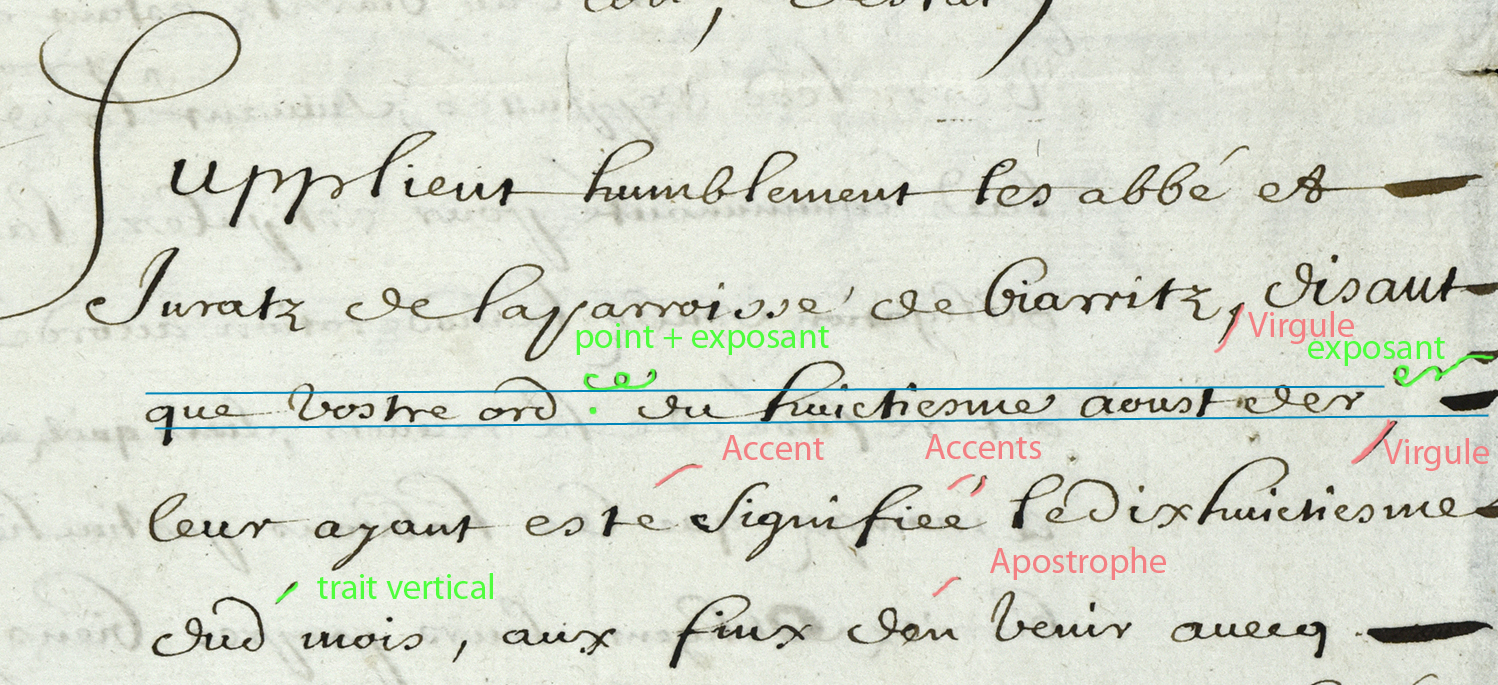 Supplient humblement les abbé et
Juratz de la parroisse de Biarritz, disant
point + exposant Virgule
exposant
que vostre ord.ce du huictiesme aoust der er
Accent Accents Virgule
leur ayant esté signifiée le dixhuictiesme
trait vertical Apostrophe
dud' mois, aux finx d'en venir auecq